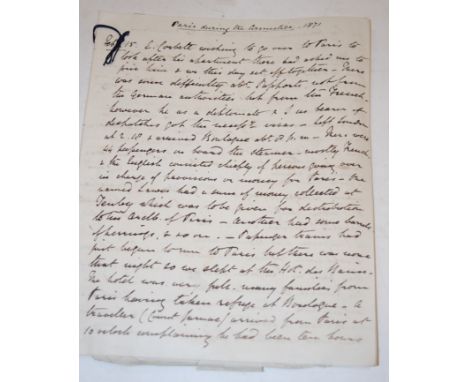 Paris during the Armistice. 1871
Feb. 15. E. Corbett wishing to go over to Paris to
look after his apartment there had asked me to
join him & we this day set off together. There
was some difficulty abt. Passports not from
the German authorities but from the French.
however he as a diplomate & I as bearer of
despatches got the necessy. visas. left London
at 2.10 & arrived Boulogne abt. 8 p.m. There were
44 passengers on board the steamer. mostly French
& the English consisted chiefly of persons going over
in charge of provisions or money for Paris. One
named had a sum of money collected at
Tenby which was to be given for distribution
to the Archb. of Paris. another had some barrels
of herrings, & so on. Passenger trains had
just begun to run to Paris but there was none
that night so we slept at the Hot. des Bains.
The hotel was very full. many families from
Paris having taken refuge at Boulogne. A
traveller (Count) arrived from Paris at
10 o'clock complaining he had been ten hours